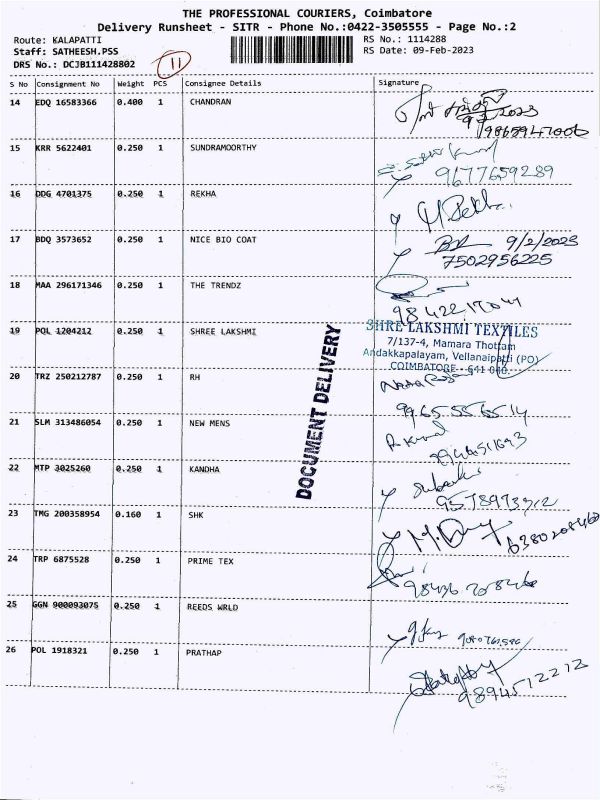 THE PROFESSIONAL COURIERS, Coimbatore
Delivery Runsheet - SITR - Phone No.:0422-3505555 - Page No.:2
Route: KALAPATTI
RS No.: 1114288
Staff: SATHEESH.PSS
RS Date: 09-Feb-2023
DRS No.: DCJB111428802
11
S No Consignment No Weight PCS Consignee Details Signature
14 EDQ 16583366 0.400 1 CHANDRAN
9865947006
15 KRR 5622401 0.250 1 SUNDRAMOORTHY
9677659289
16 DDG 4701375 0.250 1 REKHA
17 BDQ 3573652 0.250 1 NICE BIO COAT
9/2/2023
7502956225
18 MAA 296171346 0.250 1 THE TRENDZ
19 POL 1204212 0.250 1 SHREE LAKSHMI
SHRE LAKSHMI TEXTILES
7/137-4, Mamara Thottam
Andakkapalayam, Vellanaipatti (PO)
COIMBATORE - 641 048.
DOCUMENT DELIVERY
20 TRZ 250212787 0.250 1 RH
21 SLM 313486054 0.250 1 NEW MENS
22 MTP 3025260 0.250 1 KANDHA
23 TMG 200358954 0.160 1 SHK
24 TRP 6875528 0.250 1 PRIME TEX
25 GGN 900093075 0.250 1 REEDS WRLD
26 POL 1918321 0.250 1 PRATHAP
9894512212